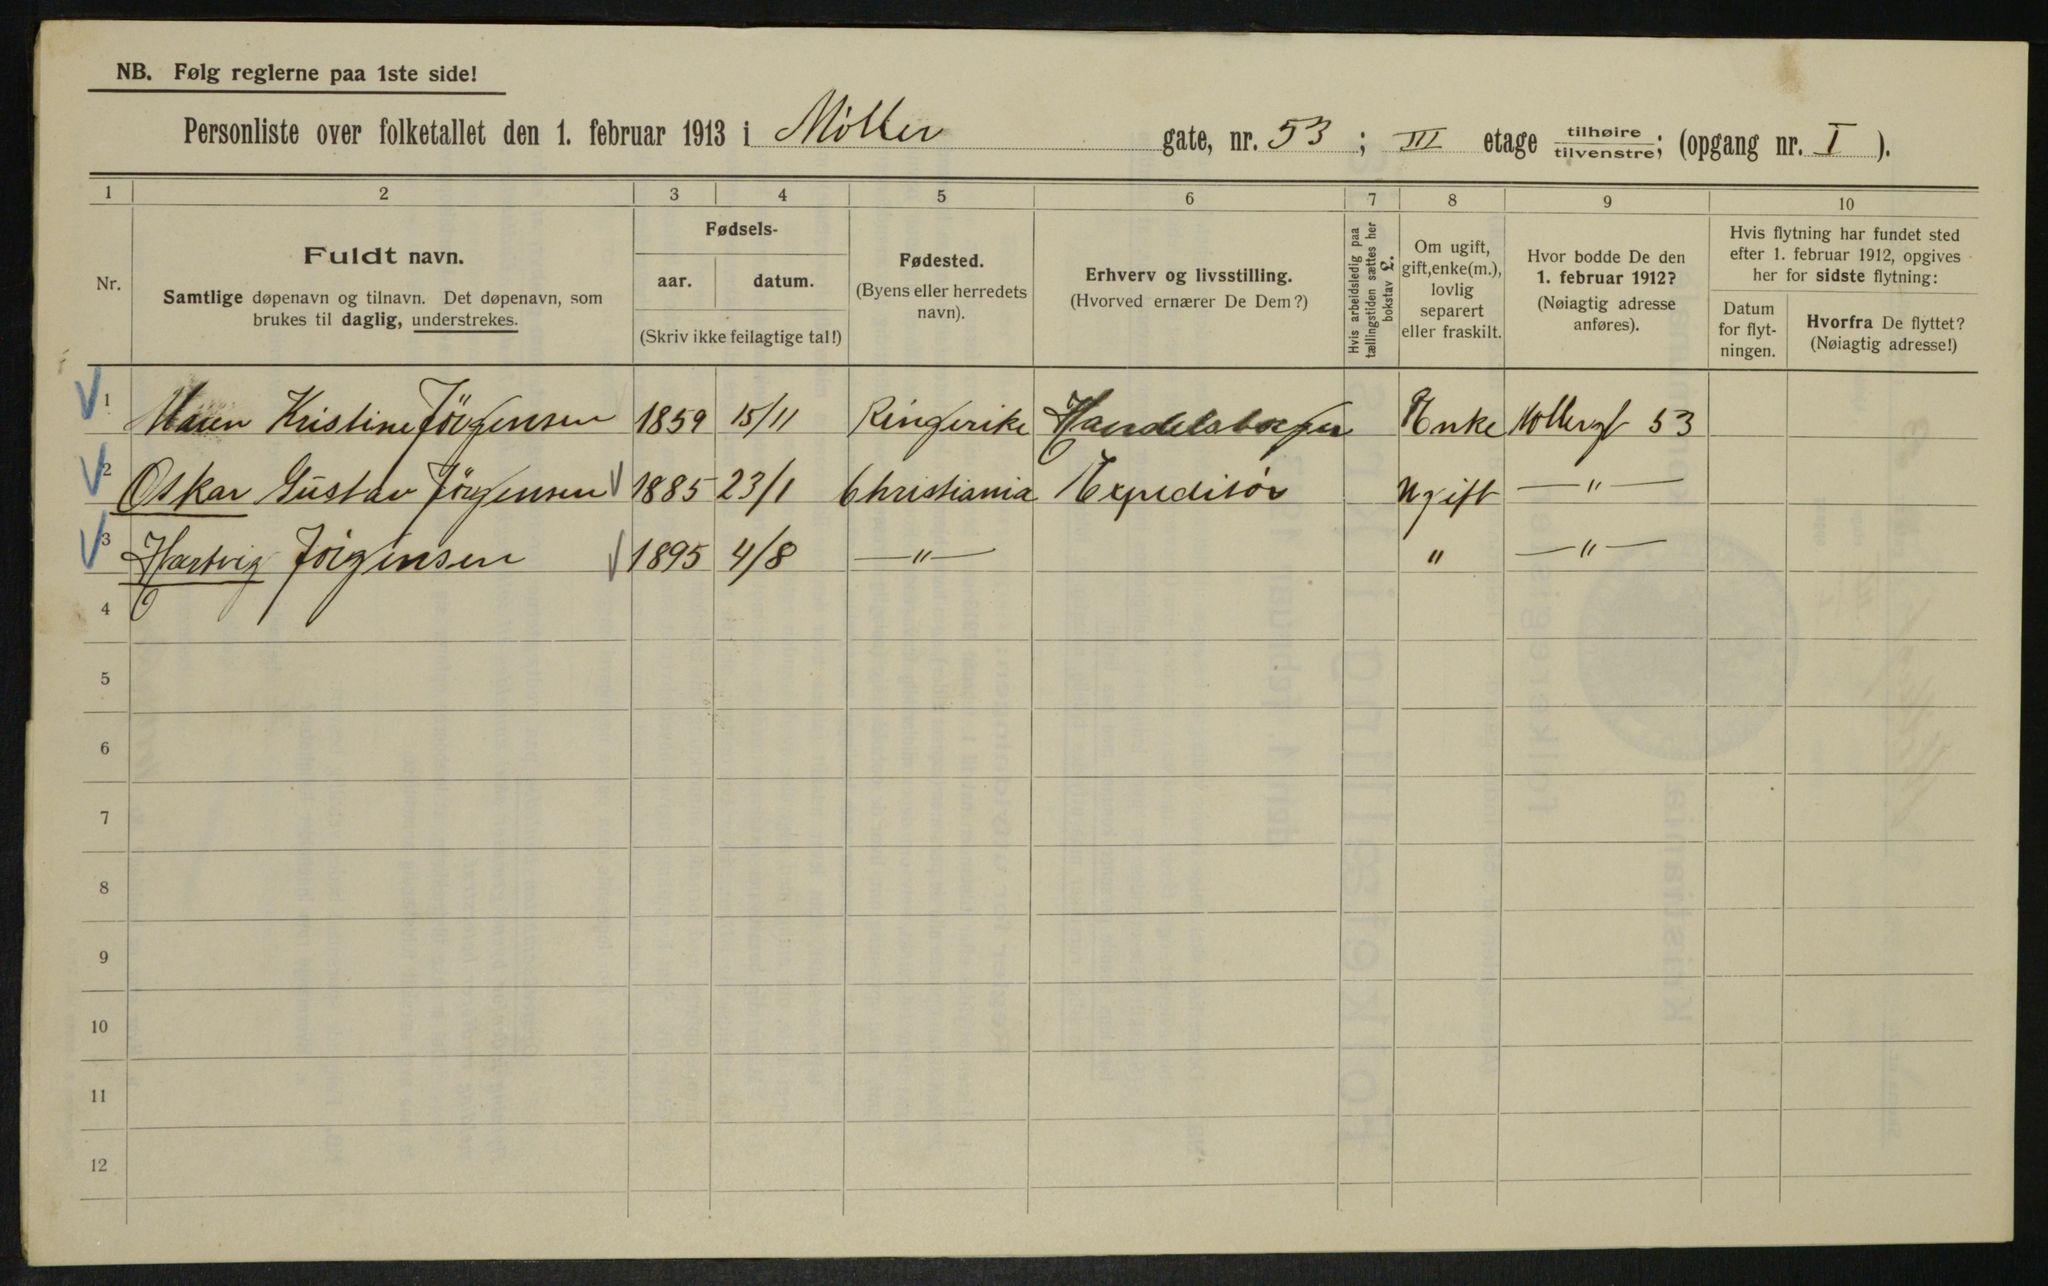 NB. Følg reglerne paa 1ste side!
Personliste over folketallet den 1. februar 1913 i Möller gate, nr. 53; III etage tilhøire/tilvenstre; (opgang nr. I).
1 2 3 4 5 6 7 8 9 10
Nr.
Fuldt navn.
Samtlige døpenavn og tilnavn. Det døpenavn, som
brukes til daglig, understrekes.
Fødsels-
aar. datum.
(Skriv ikke feilagtige tal!)
Fødested.
(Byens eller herredets
navn).
Erhverv og livsstilling.
(Hvorved ernærer De Dem?)
Hvis arbeidsledig paa
tællingstiden sættes her
bokstav £.
Om ugift,
gift, enke(m.),
lovlig
separert
eller fraskilt.
Hvor bodde De den
1. februar 1912?
(Nøiagtig adresse
anføres).
Hvis flytning har fundet sted
efter 1. februar 1912, opgives
her for sidste flytning:
Datum
for flyt-
ningen.
Hvorfra De flyttet?
(Nøiagtig adresse!)
1 Maren Kristine Jörgensen 1859 15/11 Ringerike Enke Mollergt 53
2 Oskar Gustav Jörgensen 1885 23/1 Christiania Expeditør Ugift —"—
3 Hartvig Jörgensen 1895 4/8 —"— " —"—
4
5
6
7
8
9
10
11
12